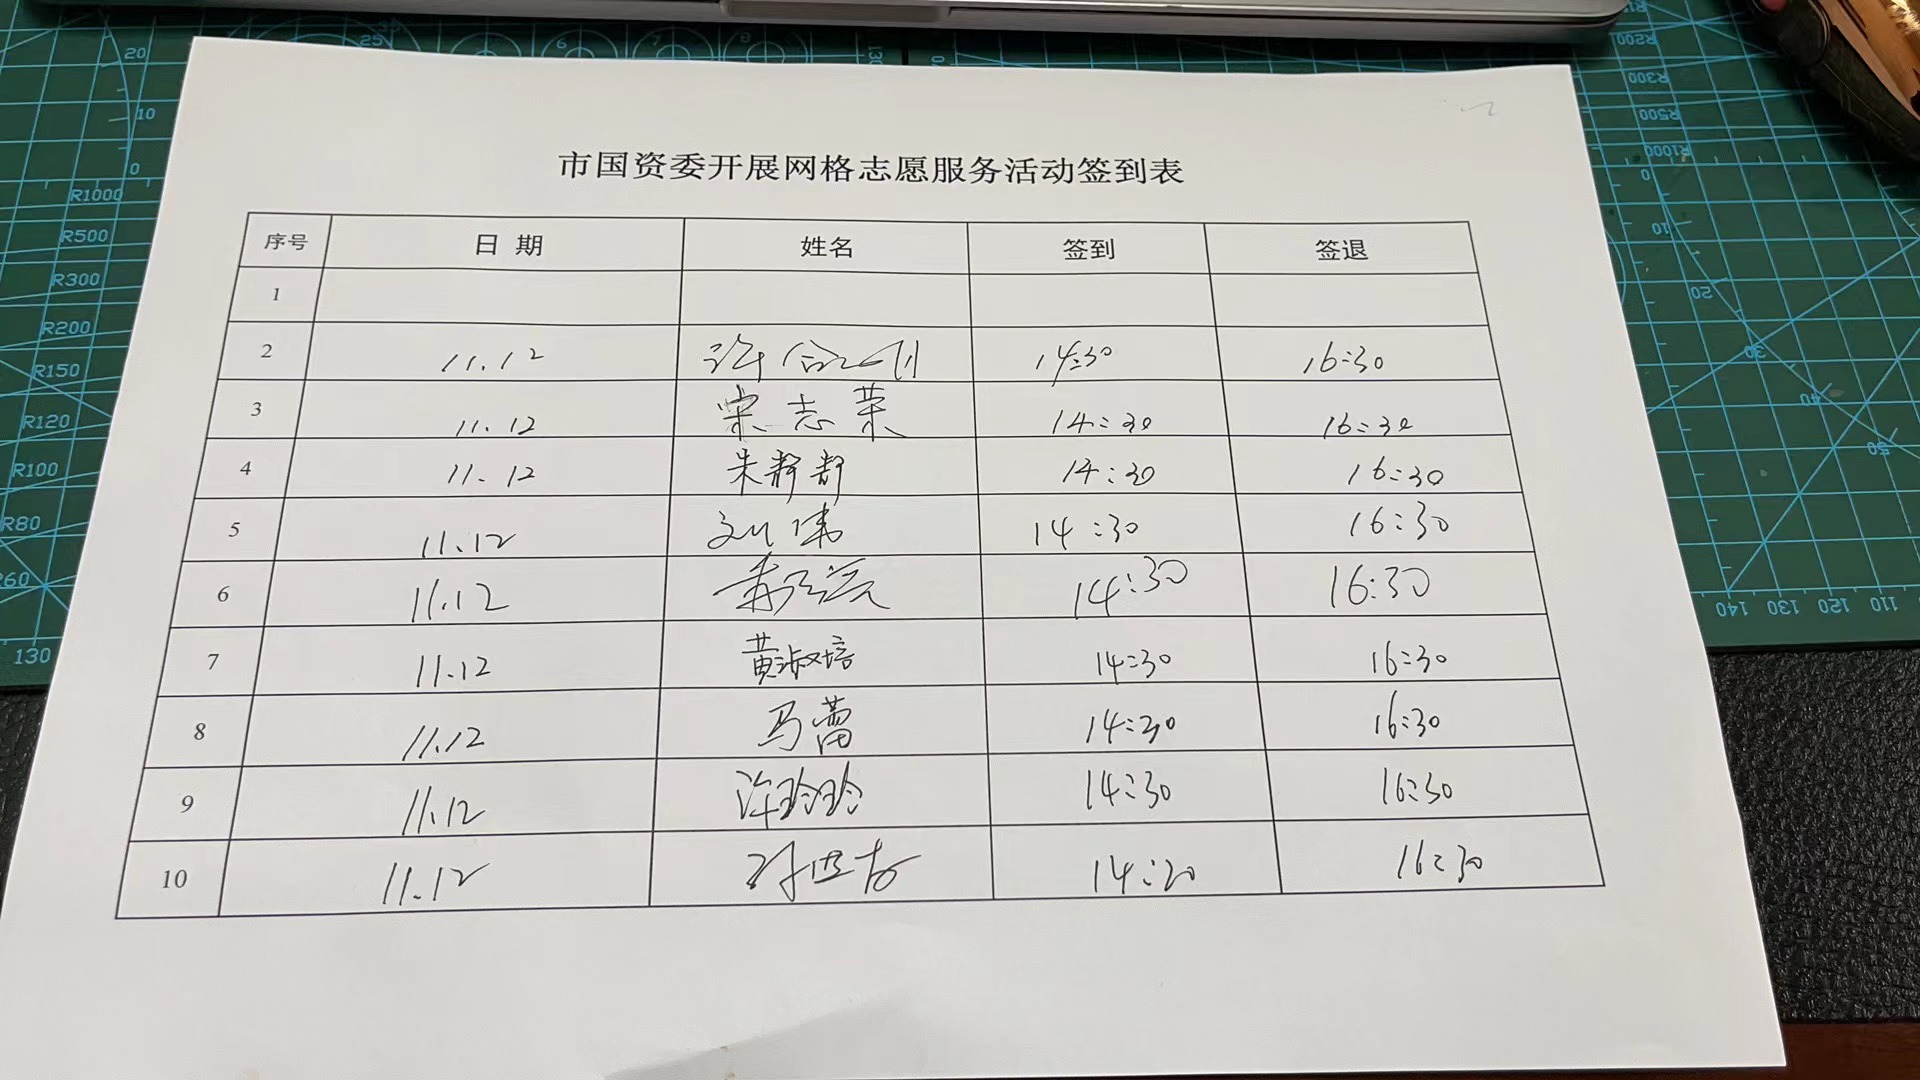 市国资委开展网格志愿服务活动签到表
序号 日期 姓名 签到 签退
1
2 11.12 许 14:30 16:30
3 11.12 宋志荣 14:30 16:30
4 11.12 朱静静 14:30 16:30
5 11.12 刘伟 14:30 16:30
6 11.12 14:30 16:30
7 11.12 黄淑培 14:30 16:30
8 11.12 马蕾 14:30 16:30
9 11.12 许玲玲 14:30 16:30
10 11.12 14:30 16:30